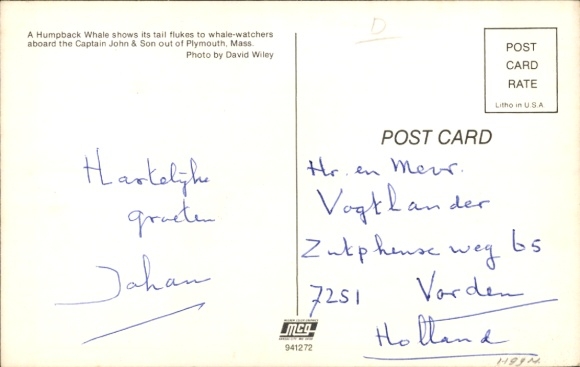 A Humpback Whale shows its tail flukes to whale-watchers
aboard the Captain John & Son out of Plymouth, Mass.
Photo by David Wiley
D
POST
CARD
RATE
Litho in U.S.A.
POST CARD
Hartelijke
groeten
Johan
Hr. en Mevr.
Vogtlander
Zutphense weg 65
7251 Vorden
Holland
mcg
941272